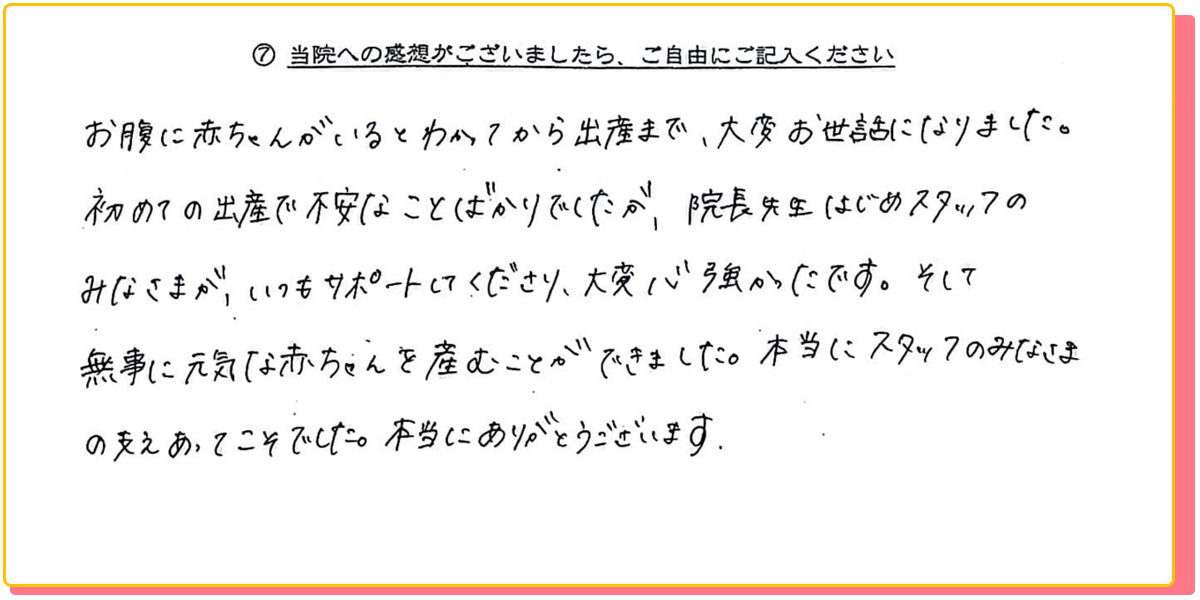 ⑦ 当院への感想がございましたら、ご自由にご記入ください
お腹に赤ちゃんがいるとわかってから出産まで、大変お世話になりました。
初めての出産で不安なことばかりでしたが、院長先生はじめスタッフの
みなさまが、いつもサポートしてくださり、大変心強かったです。そして
無事に元気な赤ちゃんを産むことができました。本当にスタッフのみなさま
の支えあってこそでした。本当にありがとうございます.